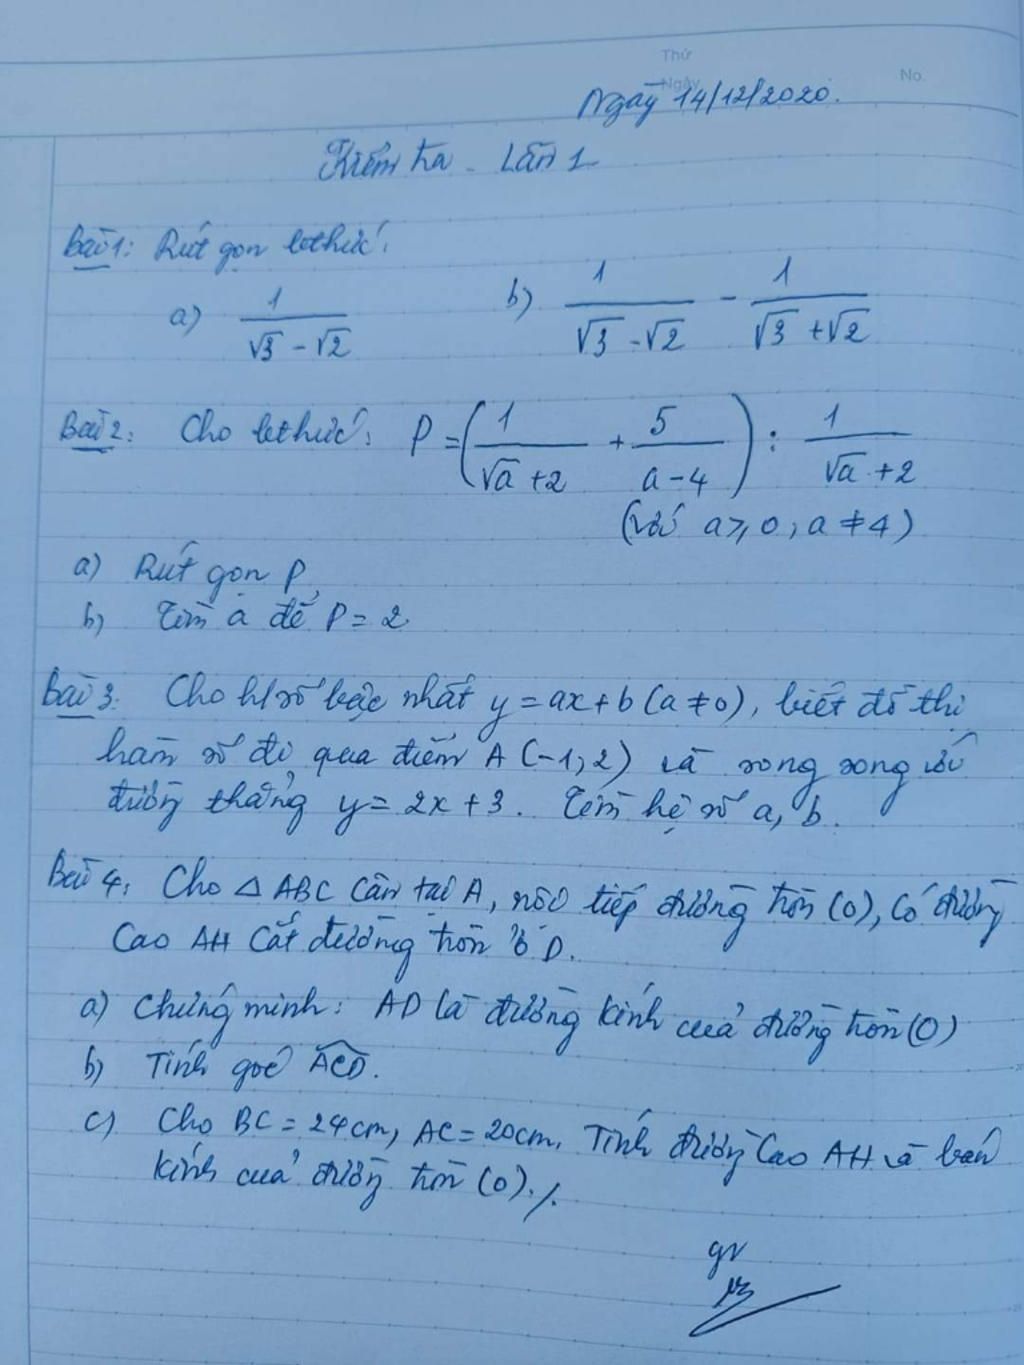 Thứ
Ngày
No.
Ngày 14/12/2020.
Kiểm tra - Lần 1
Bài 1: Rút gọn bthức:
a) 1/(√3 - √2) b) 1/(√3 - √2) - 1/(√3 + √2)
Bài 2: Cho bthức: P = (1/(√a + 2) + 5/(a - 4)) : 1/(√a + 2)
(với a ≥ 0, a ≠ 4)
a) Rút gọn P.
b) Tìm a để P = 2
Bài 3: Cho h/số bậc nhất y = ax + b (a ≠ 0), biết đồ thị
hàm số đi qua điểm A (-1; 2) và song song với
đường thẳng y = 2x + 3. Tìm hệ số a, b.
Bài 4: Cho △ ABC cân tại A, nội tiếp đường tròn (O), Có đường
Cao AH Cắt đường tròn ở D.
a) Chứng minh: AD là đường kính của đường tròn (O)
b) Tính góc ACD.
c) Cho BC = 24cm, AC = 20cm. Tính đường Cao AH và bán
kính của đường tròn (O)./.
gv